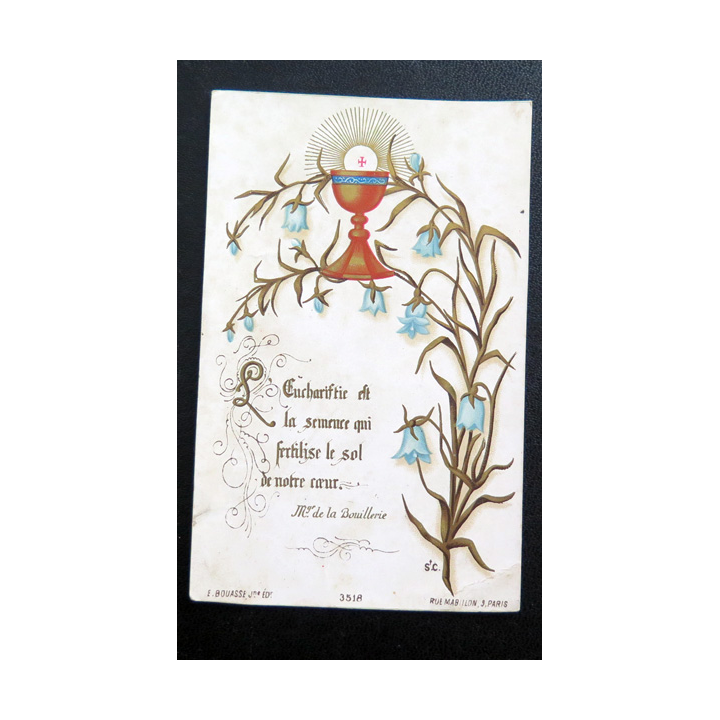 L'Eucharistie est
la semence qui
fertilise le sol
de notre cœur.
Mgr de la Bouillerie
St C.
E. BOUASSE Jne ÉDr
3518
RUE MABILLON, 3, PARIS